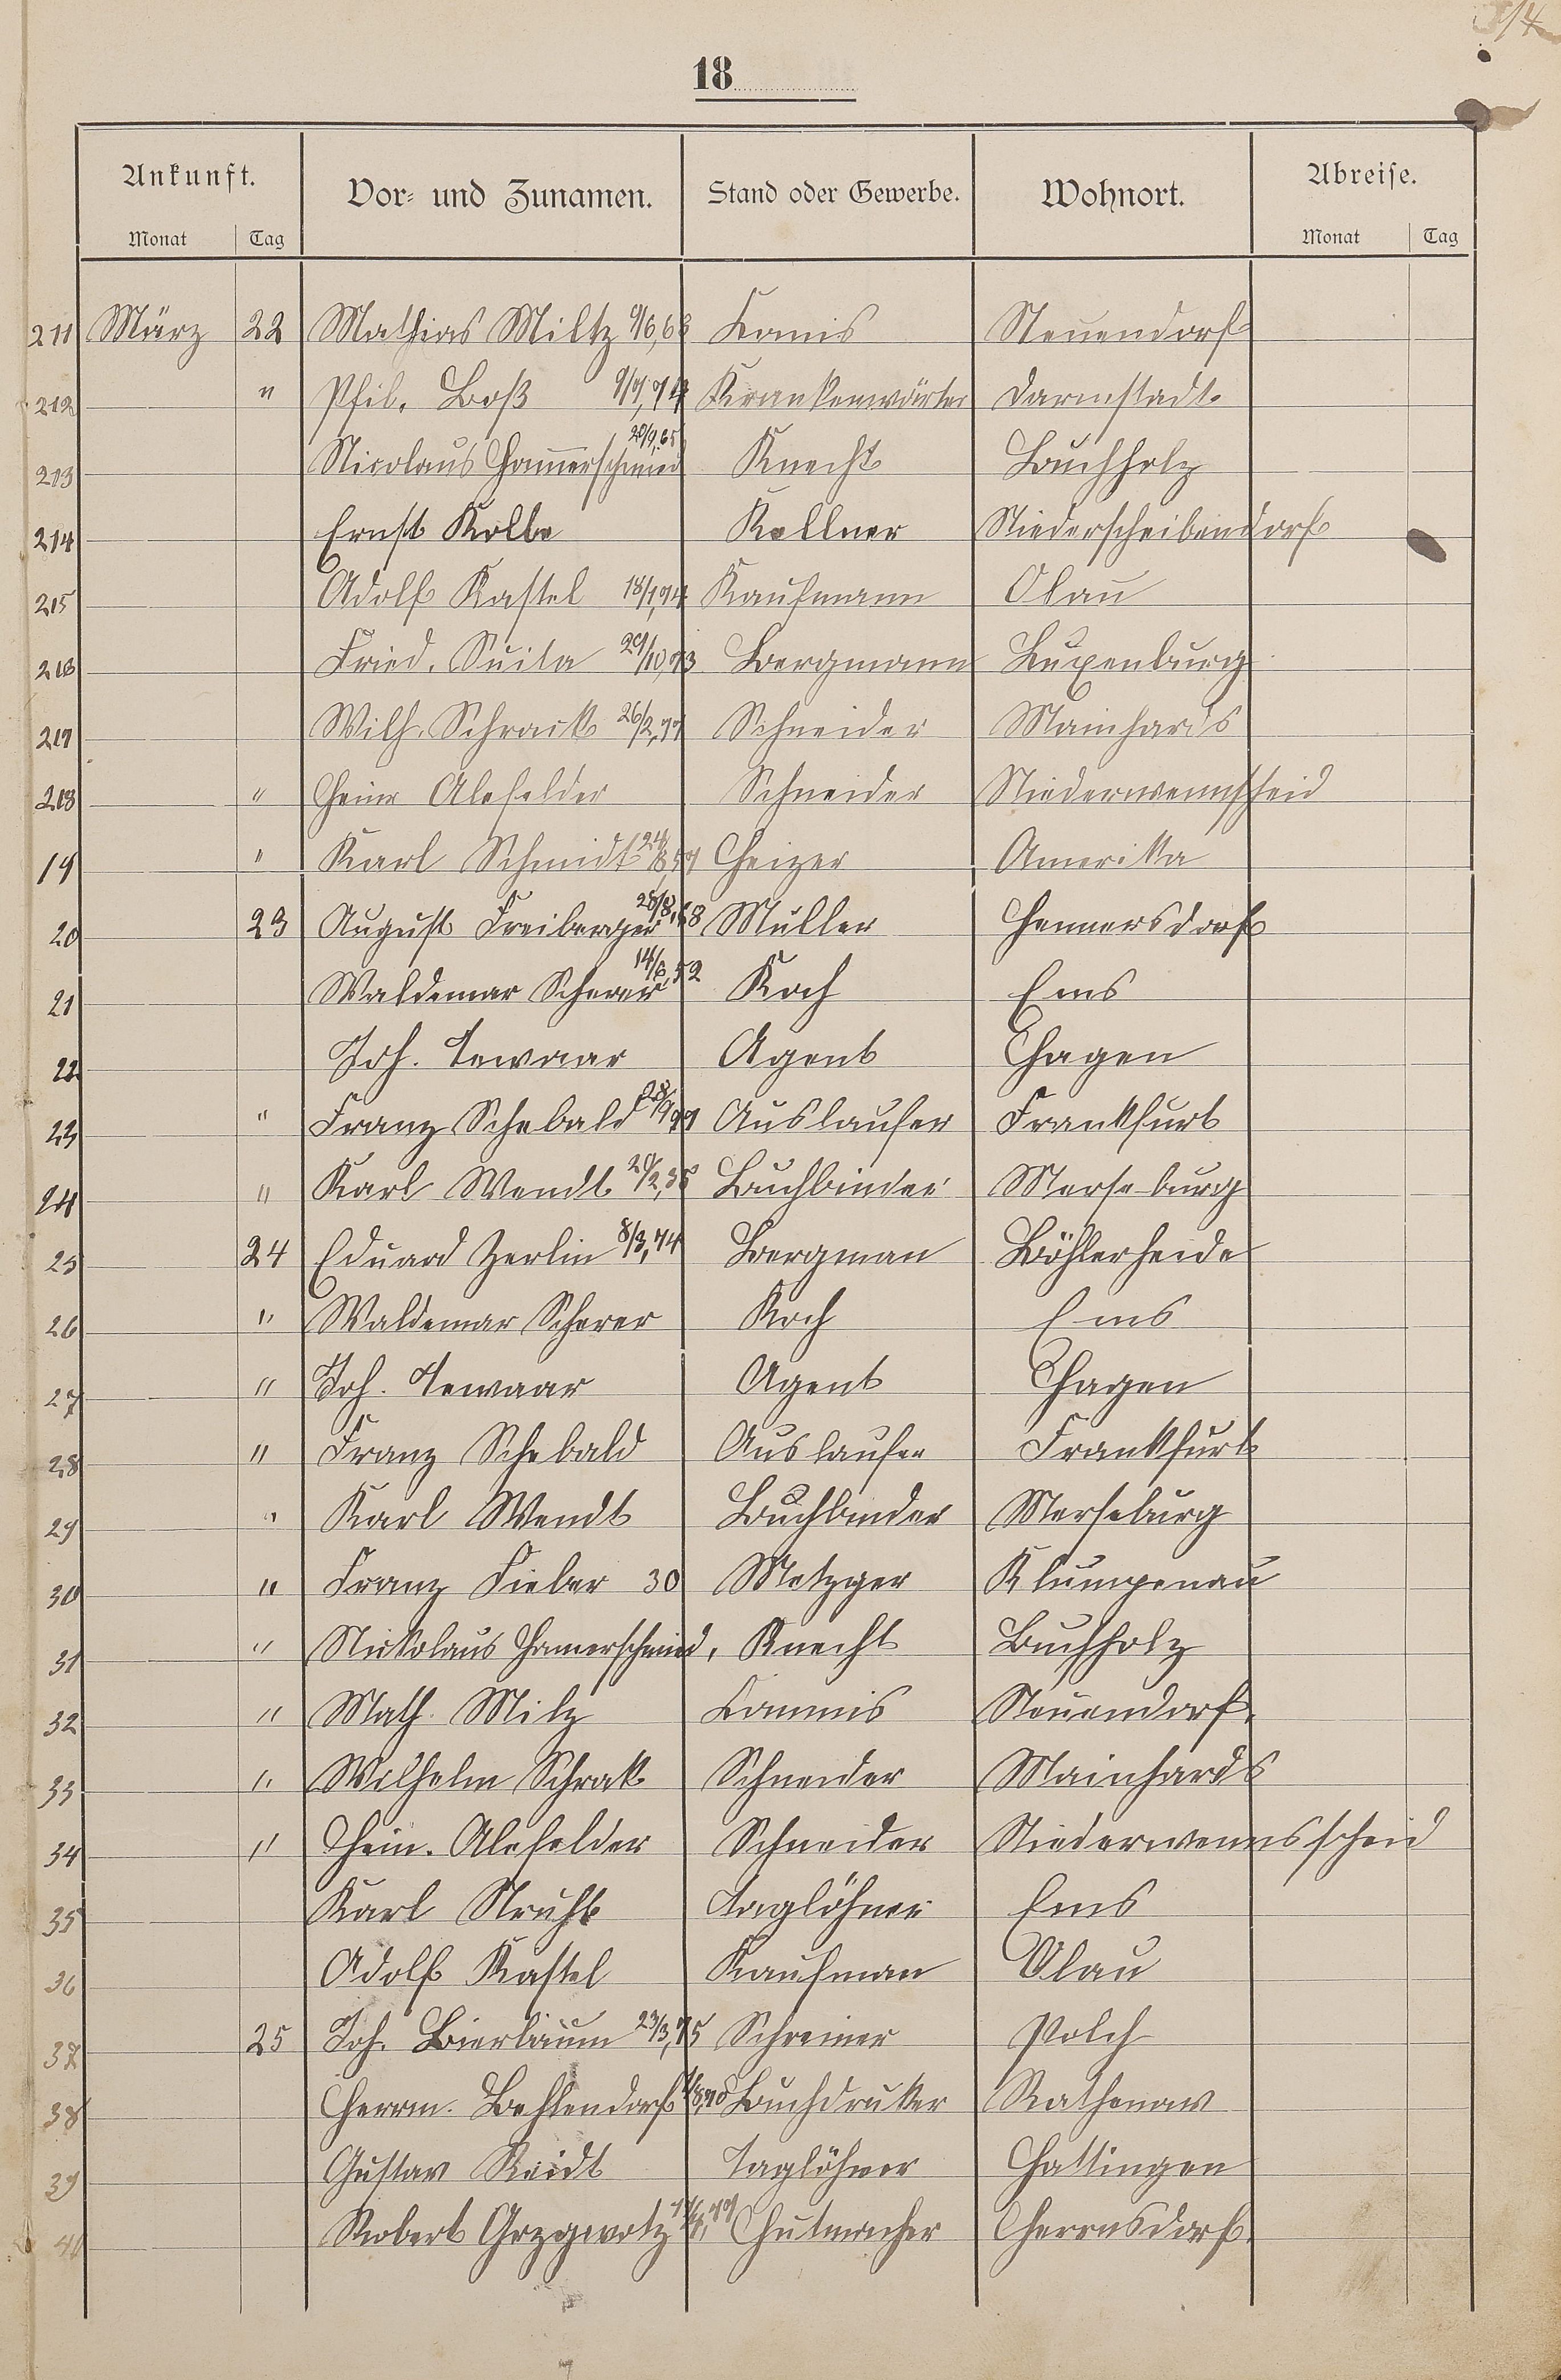 18
Ankunft. Vor- und Zunamen. Stand oder Gewerbe. Wohnort. Abreise.
Monat Tag Monat Tag
211 März 22 Mathias Miltz 9/6,68 Komis Neuendorf
212 " Phil. Boß 9/7,74 Krankenwärter Darmstadt.
213 Nicolaus Ham̄erschmied 20/9,65 Knecht Buchholz
214 Ernst Kolbe Kellner Niederscheibendorf
215 Adolf Kastel 18/1,74 Kaufmann Olau
216 Fried. Suita 29/10,73 Bergmann Luxenburg
217 Wilh. Schrack 26/2,77 Schneider Mainhards
218 " Heinr Alefelder Schneider Niederwennscheid
19 " Karl Schmidt 24/8,57 Heizer Amerika
20 23 August Freiberger 28/8,68 Müller Hennersdorf
21 Waldemar Scherer 14/6,52 Koch Ems
22 Joh. Tewaar Agent Hagen
23 " Franz Schebald 28/9,77 Auslaufer Frankfurt
24 " Karl Wendt 20/2,35 Buchbinder Merseburg
25 24 Eduard Zerlin 8/3,74 Bergman Böhlerheide
26 " Waldemar Scherer Koch Ems
27 " Joh. Tewaar Agent Hagen
28 " Franz Schebald Auslaufer Frankfurt
29 " Karl Wendt Buchbinder Merseburg
30 " Franz Fieber 30 Metzger Klumpenau
31 " Nickolaus Hamerschmied, Knecht Buchholz
32 " Math. Milz Commis Neuendorf.
33 " Wilhelm Schrak Schneider Mainhards
34 " Hein. Alefelder Schneider Niederwennsscheid
35 Karl Struht Taglöhner Ems
36 Adolf Kastel Kaufman Olau
37 25 Joh. Bierbaum 23/3,75 Schreiner Polch
38 Herrm. Behlendorf Buchdruker Rathenow
39 Gustav Reidt Taglöhner Hattingen
40 Robert Grzgwotz Hutmacher Herrnsdorf.